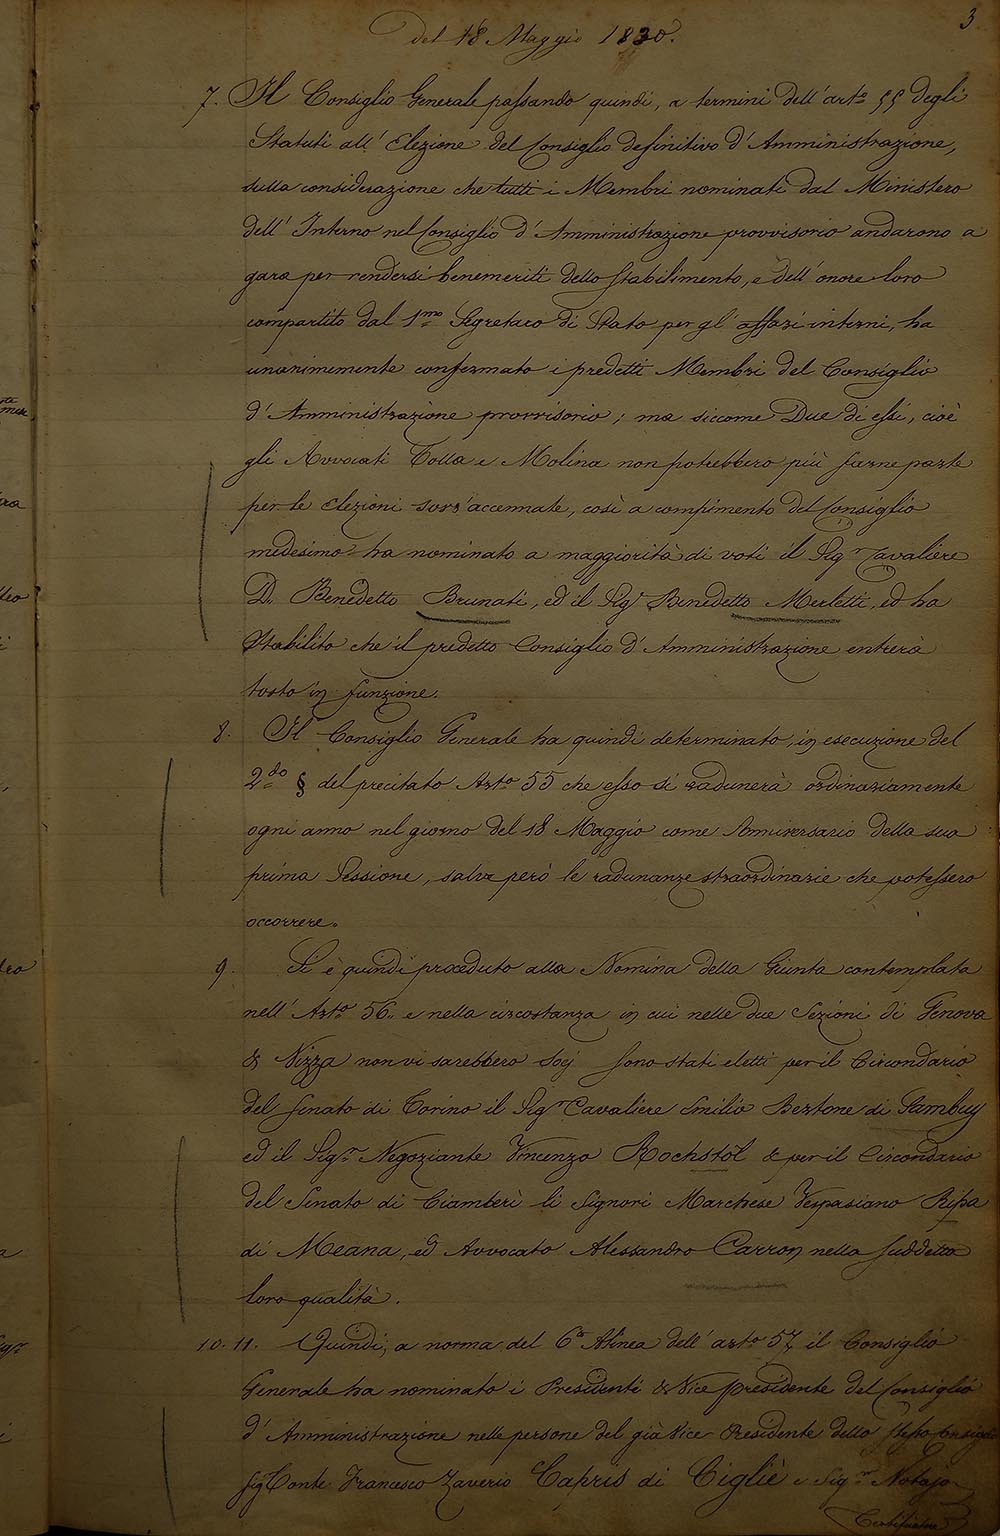 3
Del 18 Maggio 1830.
7. Il Consiglio Generale passando quindi, a termini dell' art.o 55 degli
Statuti all' Elezione del Consiglio definitivo d'Amministrazione,
sulla considerazione che tutti i Membri nominati dal Ministero
dell' Interno nel Consiglio d'Amministrazione provvisorio andarono a
gara per rendersi benemeriti dello stabilimento, e dell' onore loro
compartito dal 1.mo Segretaro di Stato per gl' affari interni, ha
unanimemente confermato i predetti Membri del Consiglio
d'Amministrazione provvisorio; ma siccome Due di essi, cioè
gli Avvocati Colla e Molina non potrebbero più farne parte
per le elezioni sovr'accennate, così a compimento del Consiglio
medesimo ha nominato a maggiorità di voti il Sig.r Cavaliere
D. Benedetto Brunati, ed il Sig.r Benedetto Merletti, ed ha
Stabilito che il predetto Consiglio d'Amministrazione entrerà
tosto in funzione.
8. Il Consiglio Generale ha quindi determinato, in esecuzione del
2.do § del precitato Art.o 55 che esso si radunerà ordinariamente
ogni anno nel giorno del 18 Maggio come Anniversario della sua
prima Sessione, salve però le radunanze straordinarie che potessero
occorrere.
9. Si è quindi proceduto alla Nomina della Giunta contemplata
nell' Art.o 56, e nella circostanza in cui nelle due Sezioni di Genova
& Nizza non vi sarebbero Socj sono stati eletti per il Circondario
del Senato di Torino il Sig.r Cavaliere Emilio Bertone di Sambuy
ed il Sig.r Negoziante Vincenzo Rochstol & per il Circondario
del Senato di Ciamberì li Signori Marchese Vespasiano Ripa
di Meana, ed Avvocato Alessandro Carron nella suddetta
loro qualità.
10. 11. Quindi, a norma del 6.o Alinea dell' art.o 57, il Consiglio
Generale ha nominato i Presidenti & Vice presidente del Consiglio
d'Amministrazione nelle persone del già Vice Presidente dello stesso Consiglio
Sig.r Conte Francesco Zaverio Capris di Cigliè e Sig.r Notajo
Certificatore